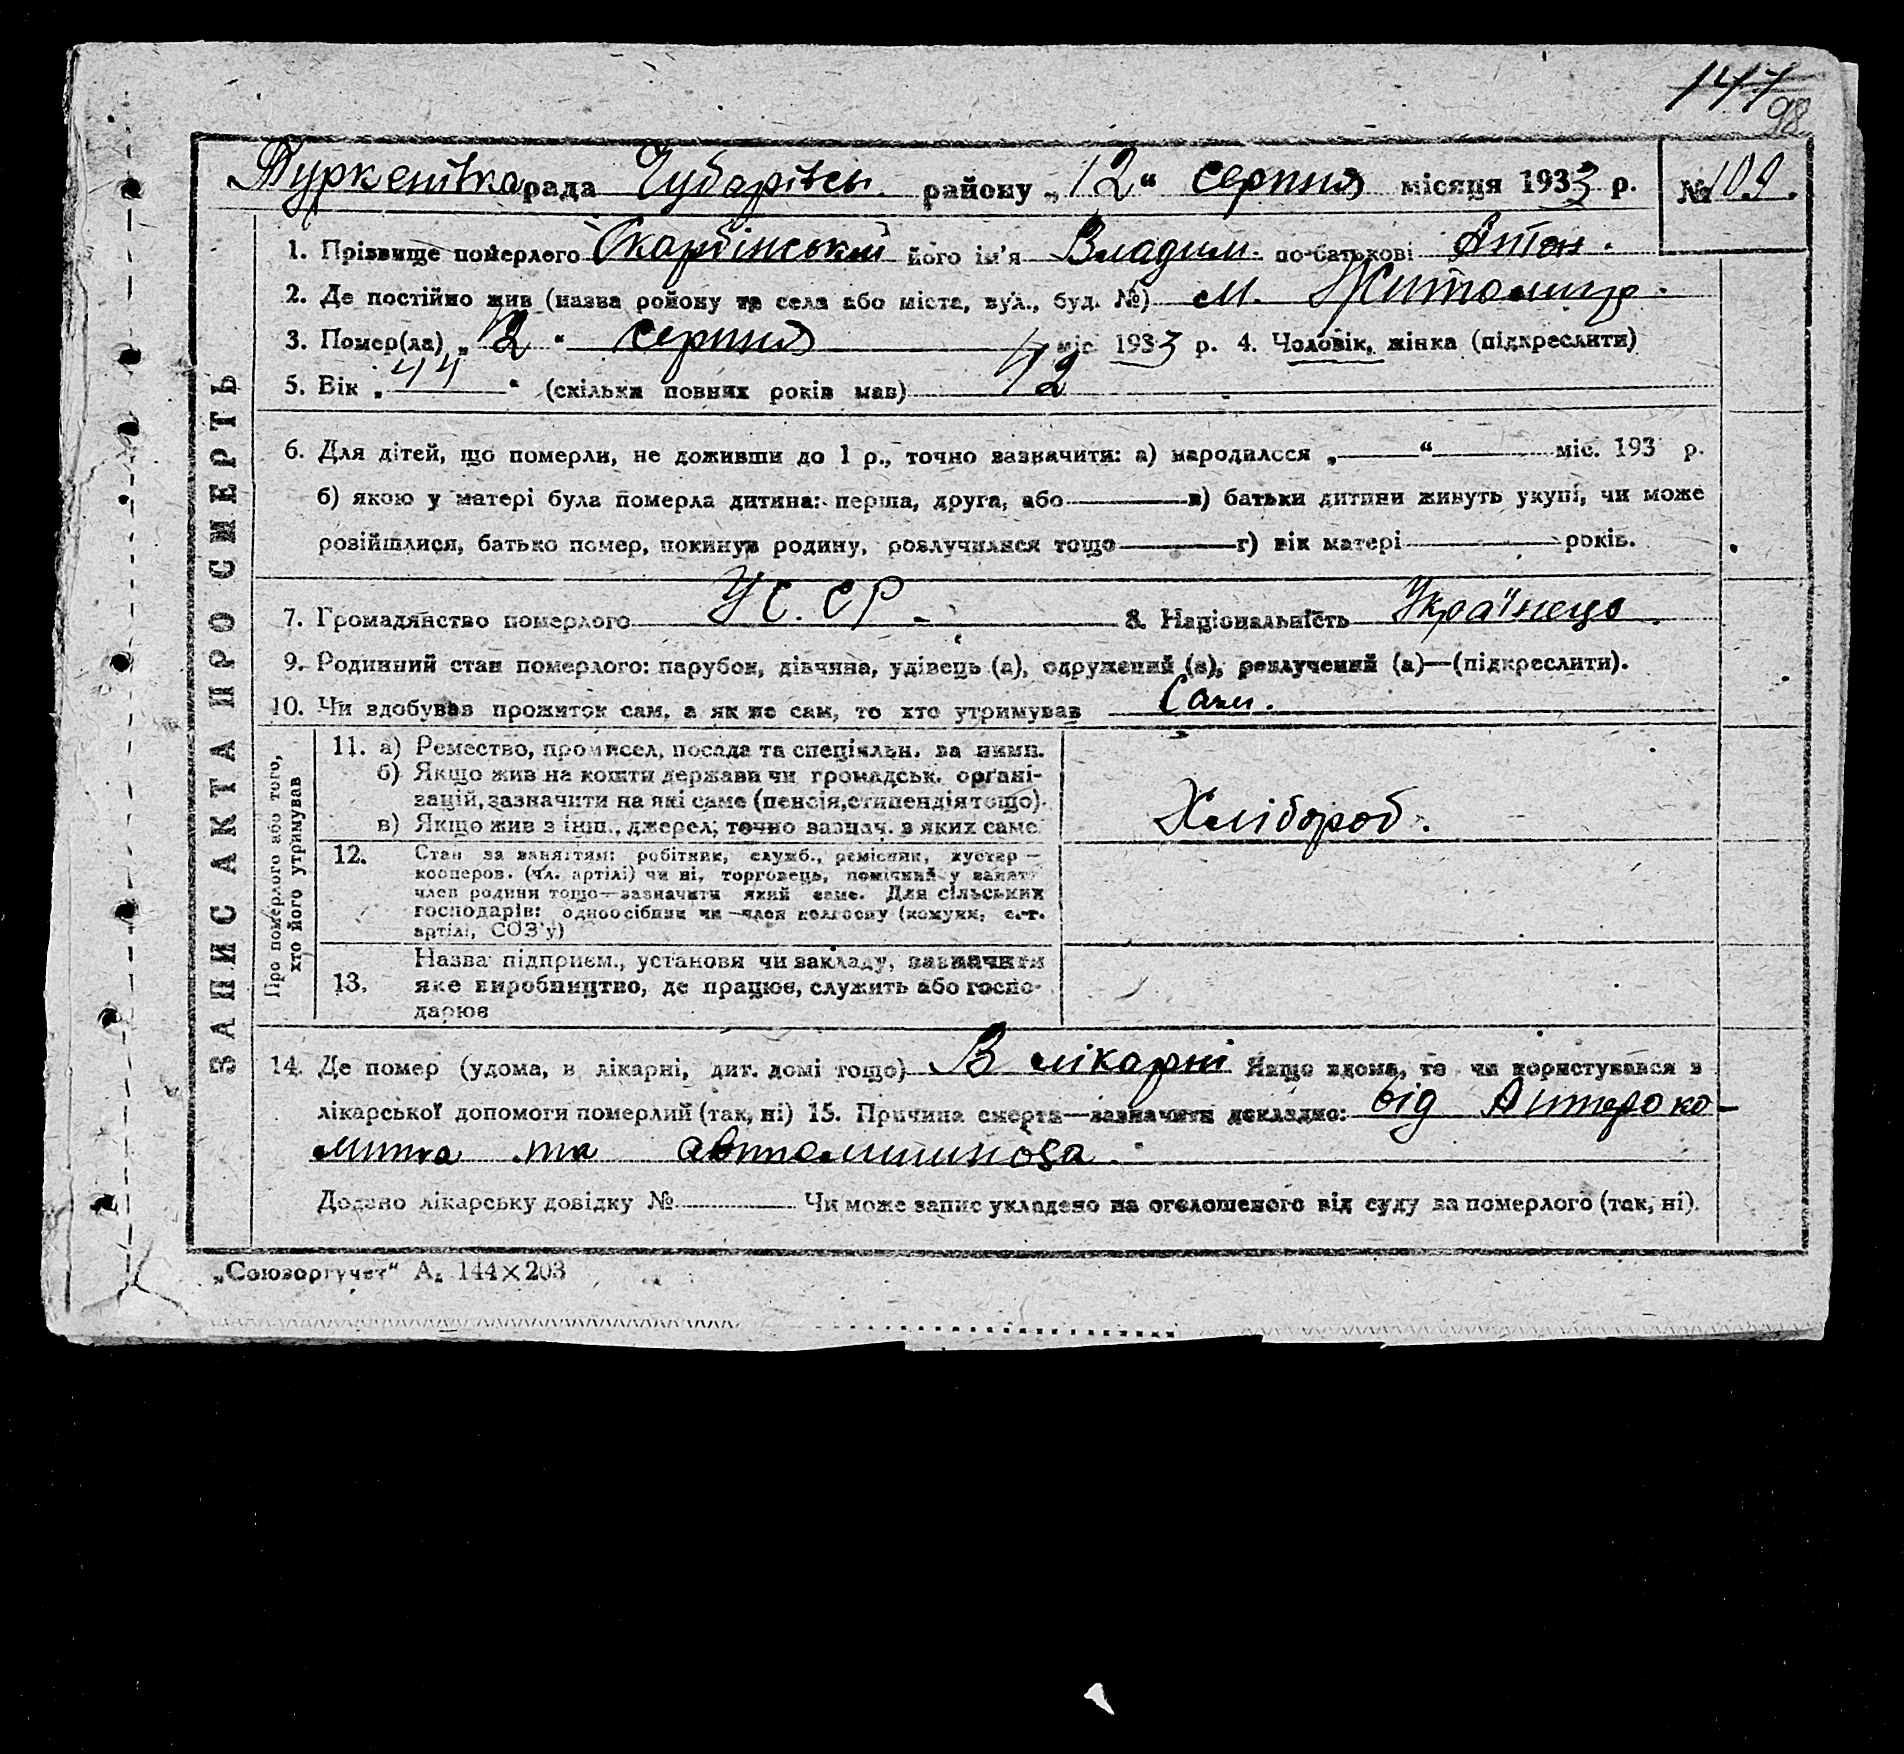 147
98
Туркенівка рада Чубарівськ. району „12“ серпня місяця 1933 р. № 109.
ЗАПИС АКТА ПРО СМЕРТЬ
1. Прізвище померлого Скарбінський його ім'я Владим. по-батькові Антон.
2. Де постійно жив (назва району та села або міста, вул., буд. №) м. Житомир.
3. Помер(ла) „12“ серпня міс. 1933 р. 4. Чоловік, жінка (підкреслити)
5. Вік „44“ (скільки повних років мав) 42
6. Для дітей, що померли, не доживши до 1 р., точно зазначити: а) народилося „—“ — міс. 193 р.
б) якою у матері була померла дитина: перша, друга, або — в) батьки дитини живуть укупі, чи може
розійшлися, батько помер, покинув родину, розлучилися тощо — г) вік матері — років.
7. Громадянство померлого УС.СР - 8. Національність Українець.
9. Родинний стан померлого: парубок, дівчина, удівець (а), одружений (а), розлучений (а)—(підкреслити).
10. Чи здобував прожиток сам, а як не сам, то хто утримував Сам.
Про померлого або того,
хто його утримував
11. а) Ремество, промисел, посада та спеціяльн. за ними.
б) Якщо жив на кошти держави чи громадськ. органі-
зацій, зазначити на які саме (пенсія, стипендія тощо).
в) Якщо жив з інш., джерел; точно зазнач. з яких саме
Хлібороб.
12. Стан за заняттям: робітник, служб., ремісник, кустар —
кооперов. (чл. артілі) чи ні, торговець, помічний у занят.
член родини тощо—зазначити який саме. Для сільських
господарів: одноосібник чи —член колгоспу (комуни, с.-г.
артілі, СОЗ'у)
13. Назва підприєм., установи чи закладу, зазначити
яке виробництво, де працює, служить або госпо-
дарює
14. Де помер (удома, в лікарні, дит. домі тощо) В лікарні Якщо вдома, то чи користувався з
лікарської допомоги померлий (так, ні) 15. Причина смерти—зазначити докладно: від Антероко-
лита та автоминоза.
Додано лікарську довідку № — Чи може запис укладено на оголошеного від суду за померлого (так, ні).
„Союзоргучет“ А₅ 144×203